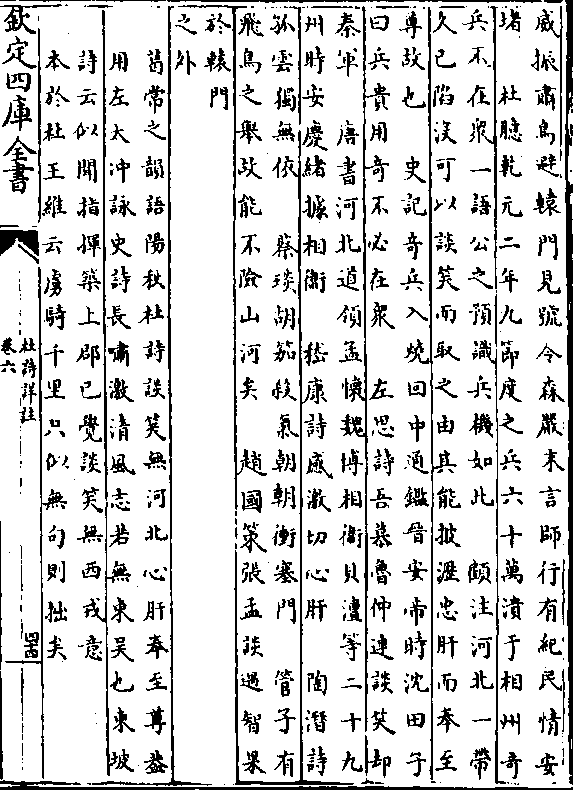 威振肅鳥避轅門見號令森嚴末言師行有紀民情安
堵　杜臆乾元二年九節度之兵六十萬潰于相州奇
兵不在衆一語公之預識兵機如此　顧注河北一帶
久已陷沒可以談笑而取之由其能披瀝忠肝而奉至
尊故也　史記奇兵入燒回中通鑑晉安帝時沈田子
曰兵貴用奇不必在衆　左思詩吾慕魯仲連談笑却
秦軍　唐書河北道領孟懷魏博相衛貝澶等二十九
州時安慶緒據相衛　嵇康詩感激切心肝　陶潛詩
孤雲獨無依　蔡琰胡笳殺氣朝朝衝塞門　管子有
飛鳥之舉故能不險山河矣　趙國策張孟談遇智果
於轅門
之外
葛常之韻語陽秋杜詩談笑無河北心肝奉至尊葢
用左太冲詠史詩長嘯激清風志若無東吳也東坡
詩云似聞指揮築上郡已覺談笑無西戎意
本於杜王維云虜騎千里只似無句則拙矣
欽定四庫全書
杜詩詳註
卷六